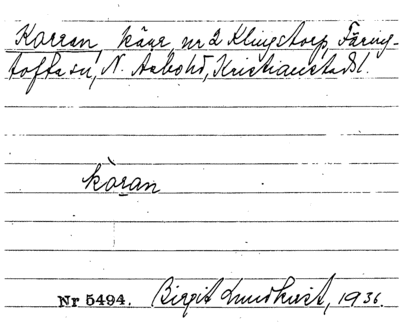 Korran, kärr, nr 2 Klingstorp, Färing-
tofta sn, N. Åsbohd, Kristianstads l.
kòran
Nr 5494. Birgit Lundkvist, 1936.